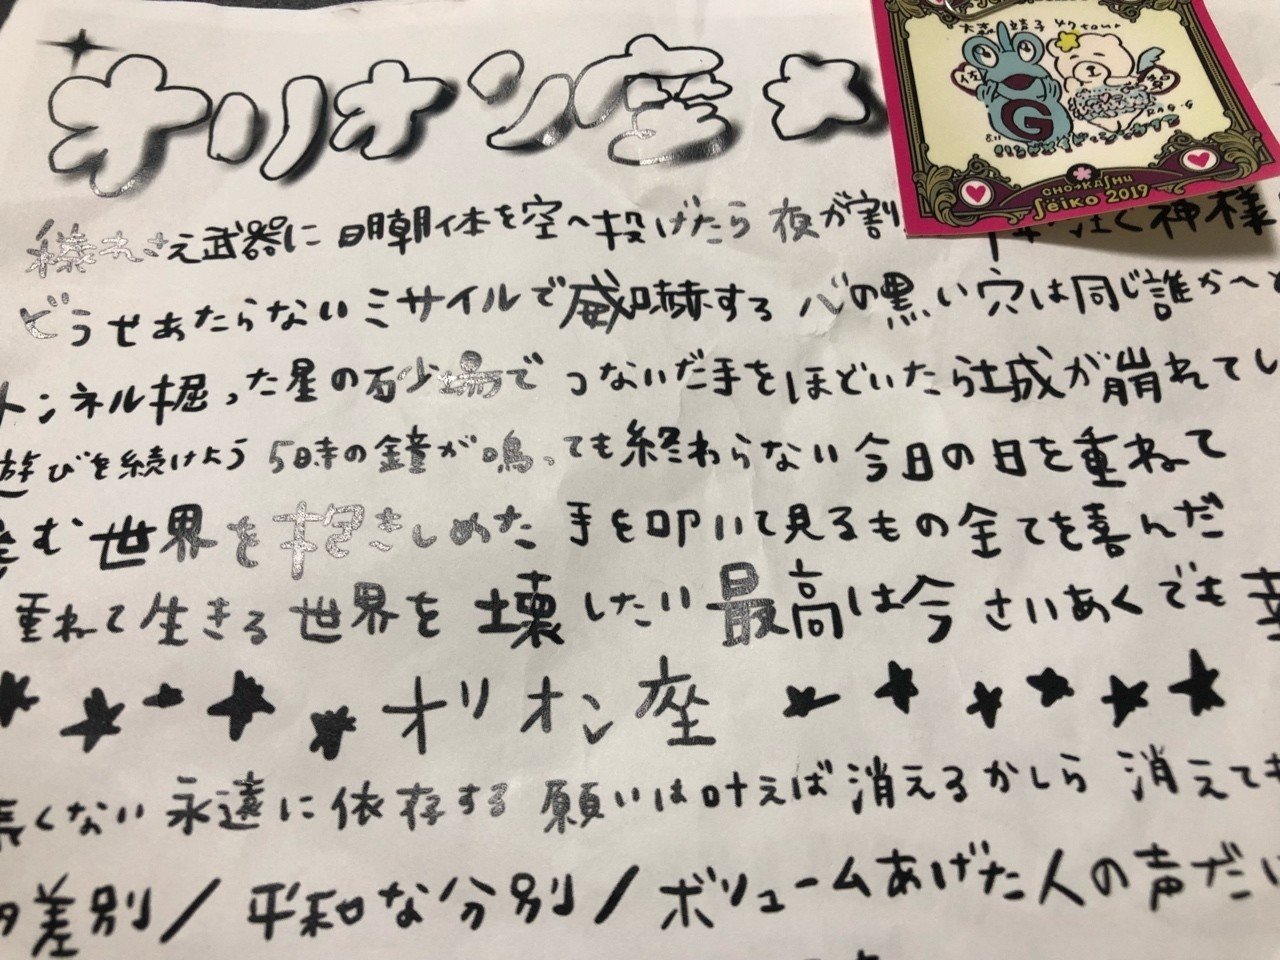 オリオン座
大森靖子 47tour
G
CHO→KASHU
Seiko 2019
穢れさえ武器に 明朝体を空へ投げたら 夜が割 神様
どうせあたらないミサイルで威嚇する 心の黒い穴は同じ誰かへと
トンネル掘った星の砂場で つないだ手をほどいたら城が崩れてし
遊びを続けよう 5時の鐘が鳴っても終わらない今日の日を重ねて
む世界を抱きしめた 手を叩いて見るもの全てを喜んだ
重ねて生きる世界を壊したい 最高は今 さいあくでも幸
オリオン座
長くない永遠に依存する 願いは叶えば消えるかしら 消えても
差別/平和な分別/ボリュームあげた人の声だけ